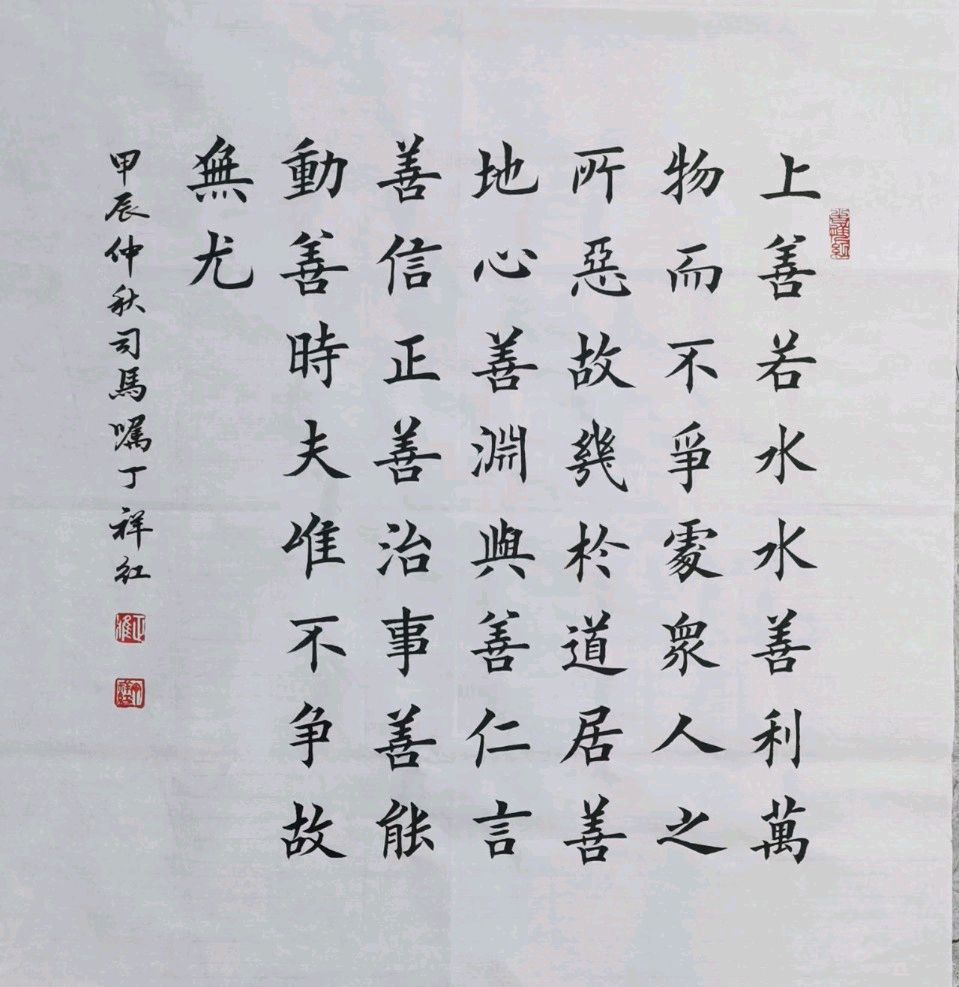 上善若水水善利萬
物而不爭處衆人之
所惡故幾於道居善
地心善淵與善仁言
善信正善治事善能
動善時夫唯不争故
無尤
甲辰仲秋司馬嘱丁祥红